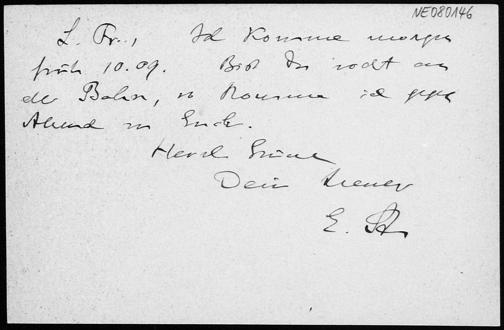 NE080146
L. Fr., Ich komme morgen
früh 10.09. Bist Du nicht an
der Bahn, so komme ich gegen
Abend zu Euch.
Herzl. Grüße
Dein treuer
E. St